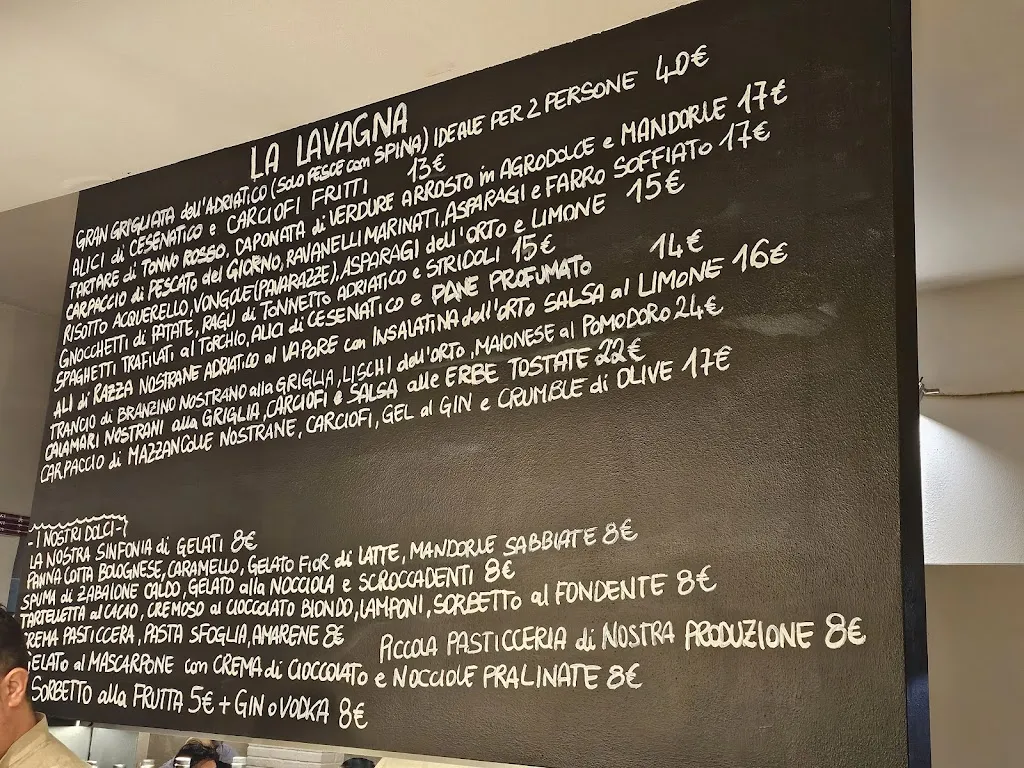 LA LAVAGNA
GRAN GRIGLIATA dell'ADRIATICO (SOLO PESCE con SPINA) IDEALE PER 2 PERSONE 40€
ALICI di CESENATICO e CARCIOFI FRITTI 13€
TARTARE di TONNO ROSSO, CAPONATA di VERDURE ARROSTO in AGRODOLCE e MANDORLE 17€
CARPACCIO di PESCATO del GIORNO, RAVANELLI MARINATI, ASPARAGI e FARRO SOFFIATO 17€
RISOTTO ACQUERELLO, VONGOLE (PAVARAZZE), ASPARAGI dell'ORTO e LIMONE 15€
GNOCCHETTI di PATATE, RAGÙ di TONNETTO ADRIATICO e STRIDOLI 15€
SPAGHETTI TRAFILATI al TORCHIO, ALICI di CESENATICO e PANE PROFUMATO 14€
ALI di RAZZA NOSTRANE ADRIATICO al VAPORE con INSALATINA dell'ORTO SALSA al LIMONE 16€
TRANCIO di BRANZINO NOSTRANO alla GRIGLIA, LISCHI dall'ORTO, MAIONESE al POMODORO 24€
CALAMARI NOSTRANI alla GRIGLIA, CARCIOFI e SALSA alle ERBE TOSTATE 22€
CARPACCIO di MAZZANCOLLE NOSTRANE, CARCIOFI, GEL al GIN e CRUMBLE di OLIVE 17€
-I NOSTRI DOLCI-
LA NOSTRA SINFONIA di GELATI 8€
PANNA COTTA BOLOGNESE, CARAMELLO, GELATO FIOR di LATTE, MANDORLE SABBIATE 8€
SPUMA di ZABAIONE CALDO, GELATO alla NOCCIOLA e SCROCCADENTI 8€
TARTELLETTA al CACAO, CREMOSO al CIOCCOLATO BIONDO, LAMPONI, SORBETTO al FONDENTE 8€
CREMA PASTICCERA, PASTA SFOGLIA, AMARENE 8€ PICCOLA PASTICCERIA di NOSTRA PRODUZIONE 8€
GELATO al MASCARPONE con CREMA di CIOCCOLATO e NOCCIOLE PRALINATE 8€
SORBETTO alla FRUTTA 5€ + GIN o VODKA 8€